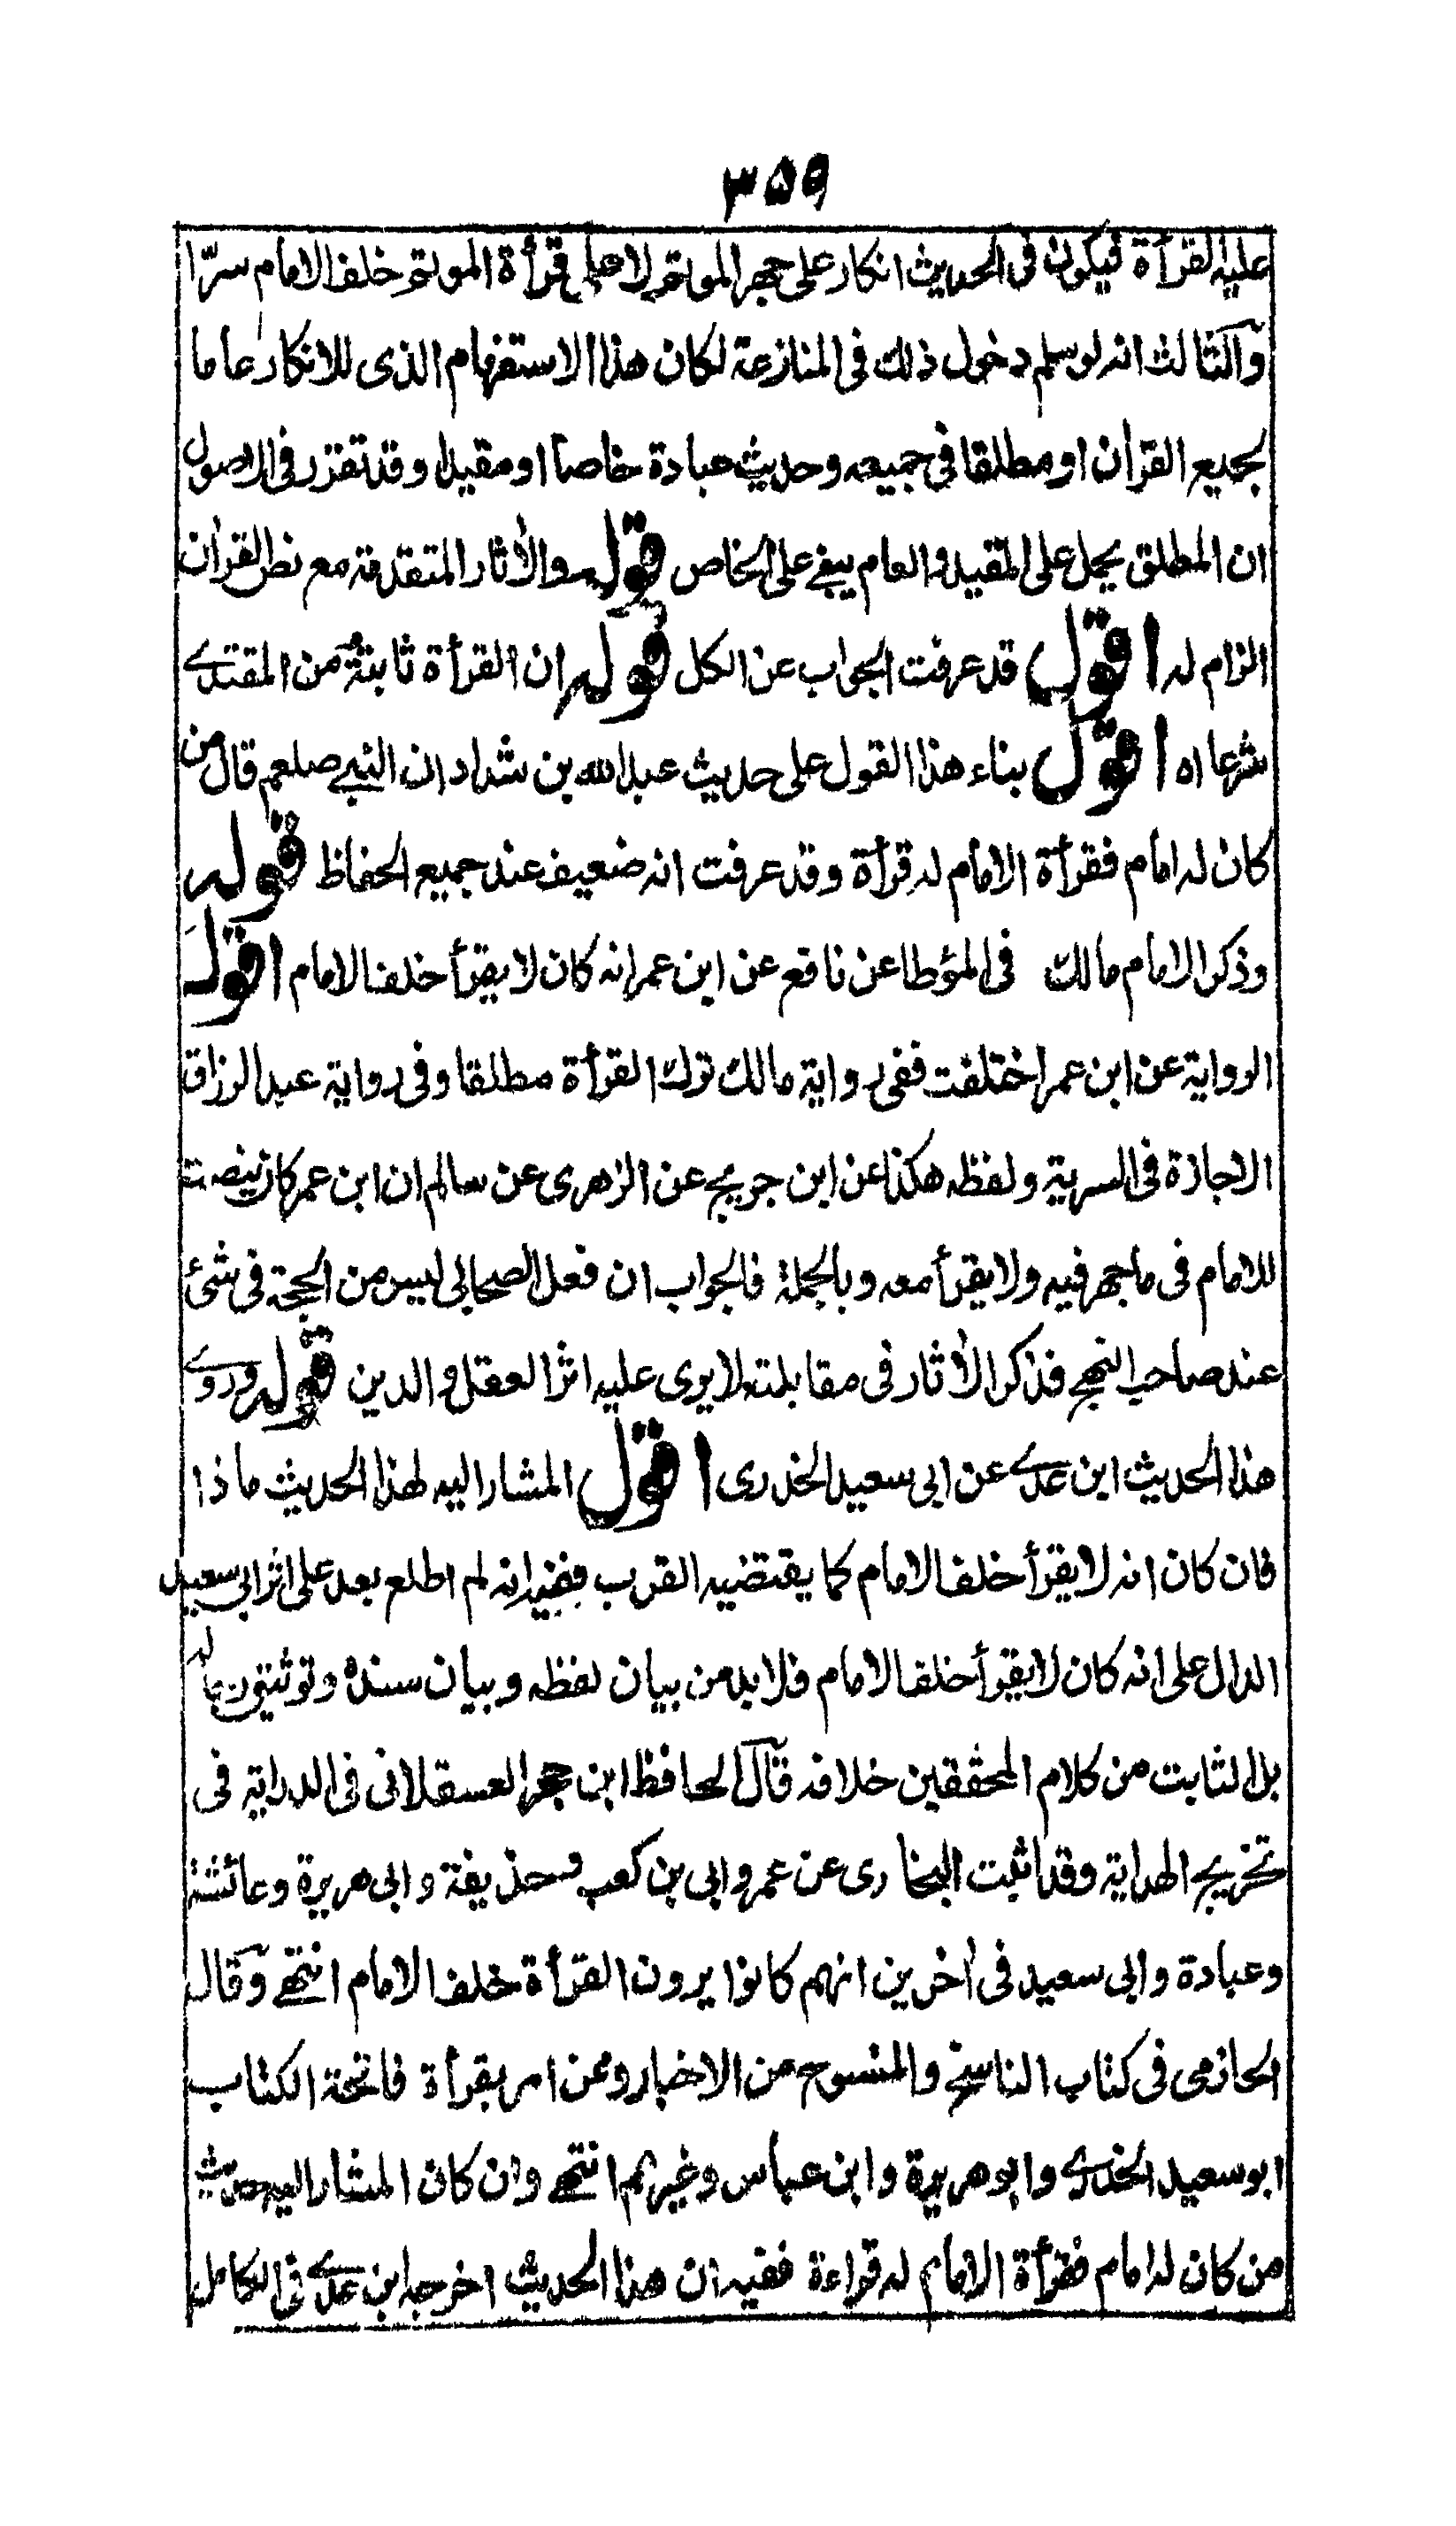 ۳۵۹
عليه القرأة فيكون فى الحديث انكار على جهر الموتم لا على قرأة الموتم خلف الامام سرّا
والثالث انه لو سلم دخول ذلك فى المنازعة لكان هذا الاستفهام الذى للانكار عاما
لجميع القرأن او مطلقا فى جميعه وحديث عبادة خاصا او مقيدا وقد تقرر فى الاصول
ان المطلق يحمل على المقيد والعام يبنے على الخاص قوله والأثار المتقدمة مع نص القرأن
الزام له اقول قد عرفت الجواب عن الكل قوله ان القرأة ثابتة من المقتدے
شرعا اه اقول بناء هذا القول على حديث عبد الله بن شداد ان النبے صلعم قال من
كان له امام فقرأة الامام له قرأة وقد عرفت انه ضعيف عند جميع الحفاظ قوله
وذكر الامام مالك فى المؤطا عن نافع عن ابن عمر انه كان لا يقرأ خلف الامام اقول
الرواية عن ابن عمر اختلفت ففى رواية مالك ترك القرأة مطلقا وفى رواية عبد الرزاق
الاجازة فى السرية ولفظه هكذا عن ابن جريج عن الزهرى عن سالم ان ابن عمر كان ينصت
للامام فى ما جهر فيه ولا يقرأ معه وبالجملة فالجواب ان فعل الصحابى ليس من الحجة فى شئ
عند صاحب النهج فذكر الأثار فى مقابلته لا يرى عليه اثر العقل والدين قوله وروے
هذا الحديث ابن عدے عن ابى سعيد الخدرى اقول المشار اليه لهذا الحديث ماذا
فان كان انه لا يقرأ خلف الامام كما يقتضيه القرب ففيه انه لم اطلع بعد على اثر ابى سعيد
الدال على انه كان لا يقرأ خلف الامام فلا بد من بيان لفظه وبيان سنده وتوثيق رجاله
بل الثابت من كلام المحققين خلافه قال الحافظ ابن حجر العسقلانى فى الدراية فى
تخريج الهداية وقد اثبت البخارى عن عمر وابى بن كعب وحذيفة وابى هريرة وعائشة
وعبادة وابى سعيد فى أخرين انهم كانوا يرون القرأة خلف الامام انتهے وقال
الحازمى فى كتاب الناسخ والمنسوخ من الاخبار وممن امر بقرأة فاتحة الكتاب
ابو سعيد الخدرے وابو هريرة وابن عباس وغيرهم انتهے وان كان المشار اليه حديث
من كان له امام فقرأة الامام له قراءة ففيه ان هذا الحديث اخرجه ابن عدے فى الكامل